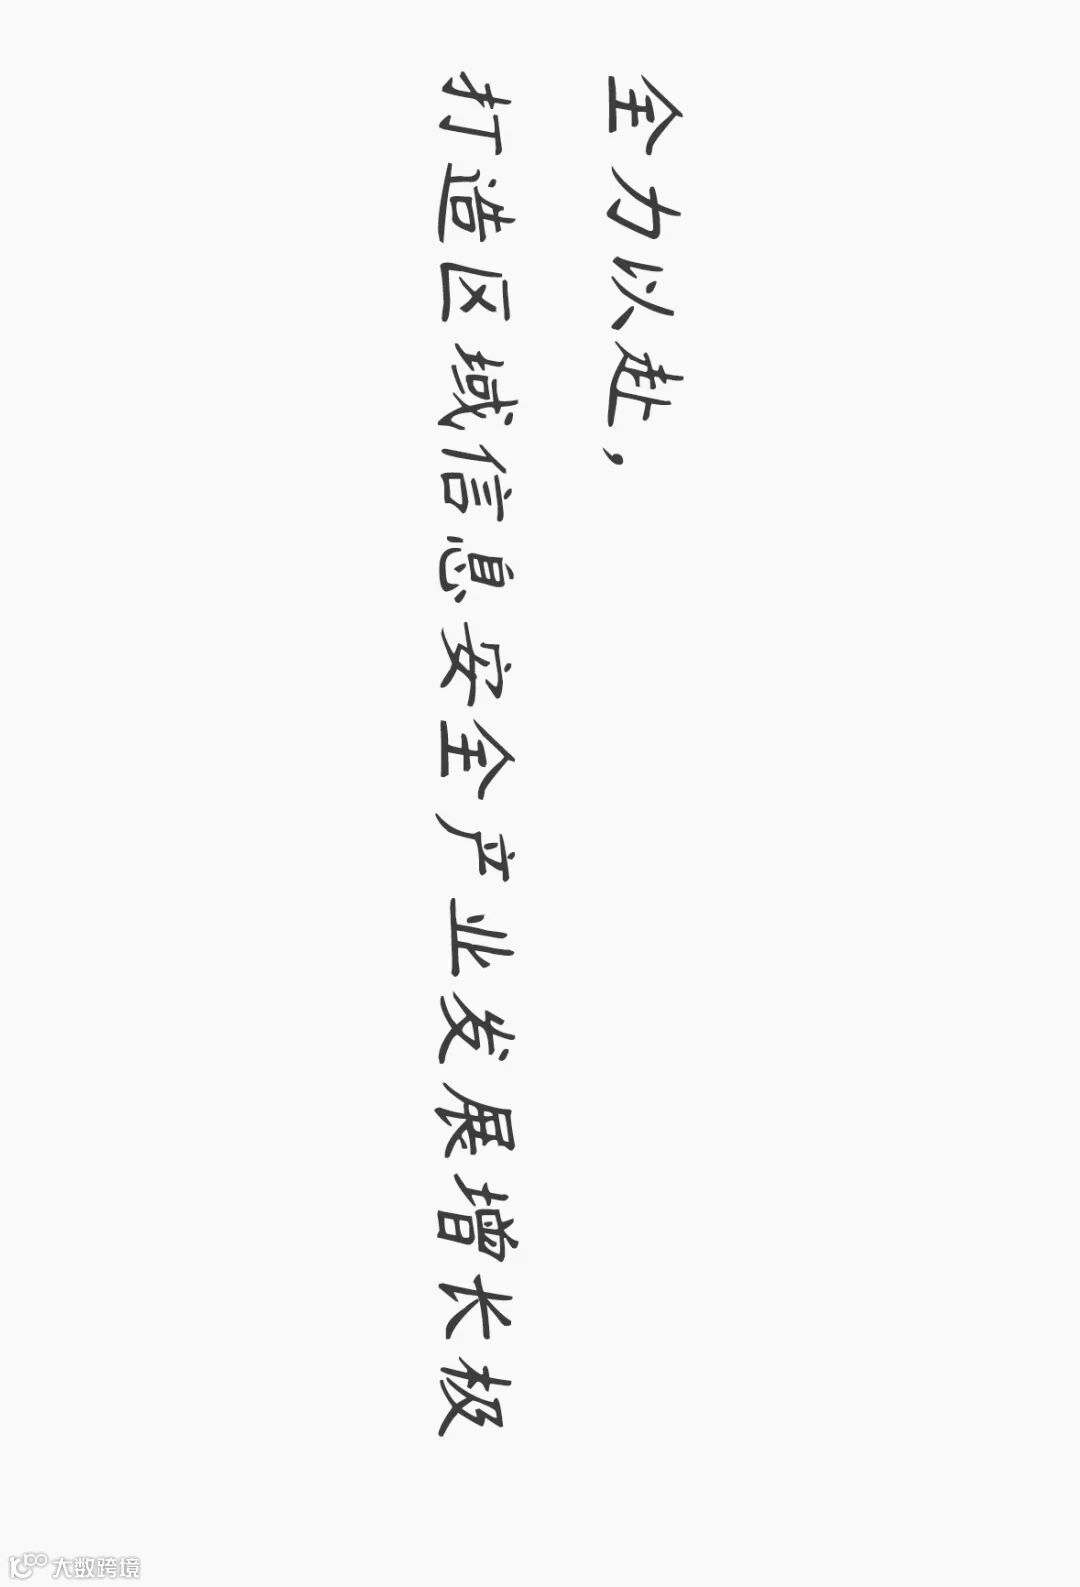 全力以赴，
打造区域信息安全产业发展增长极
大数跨境